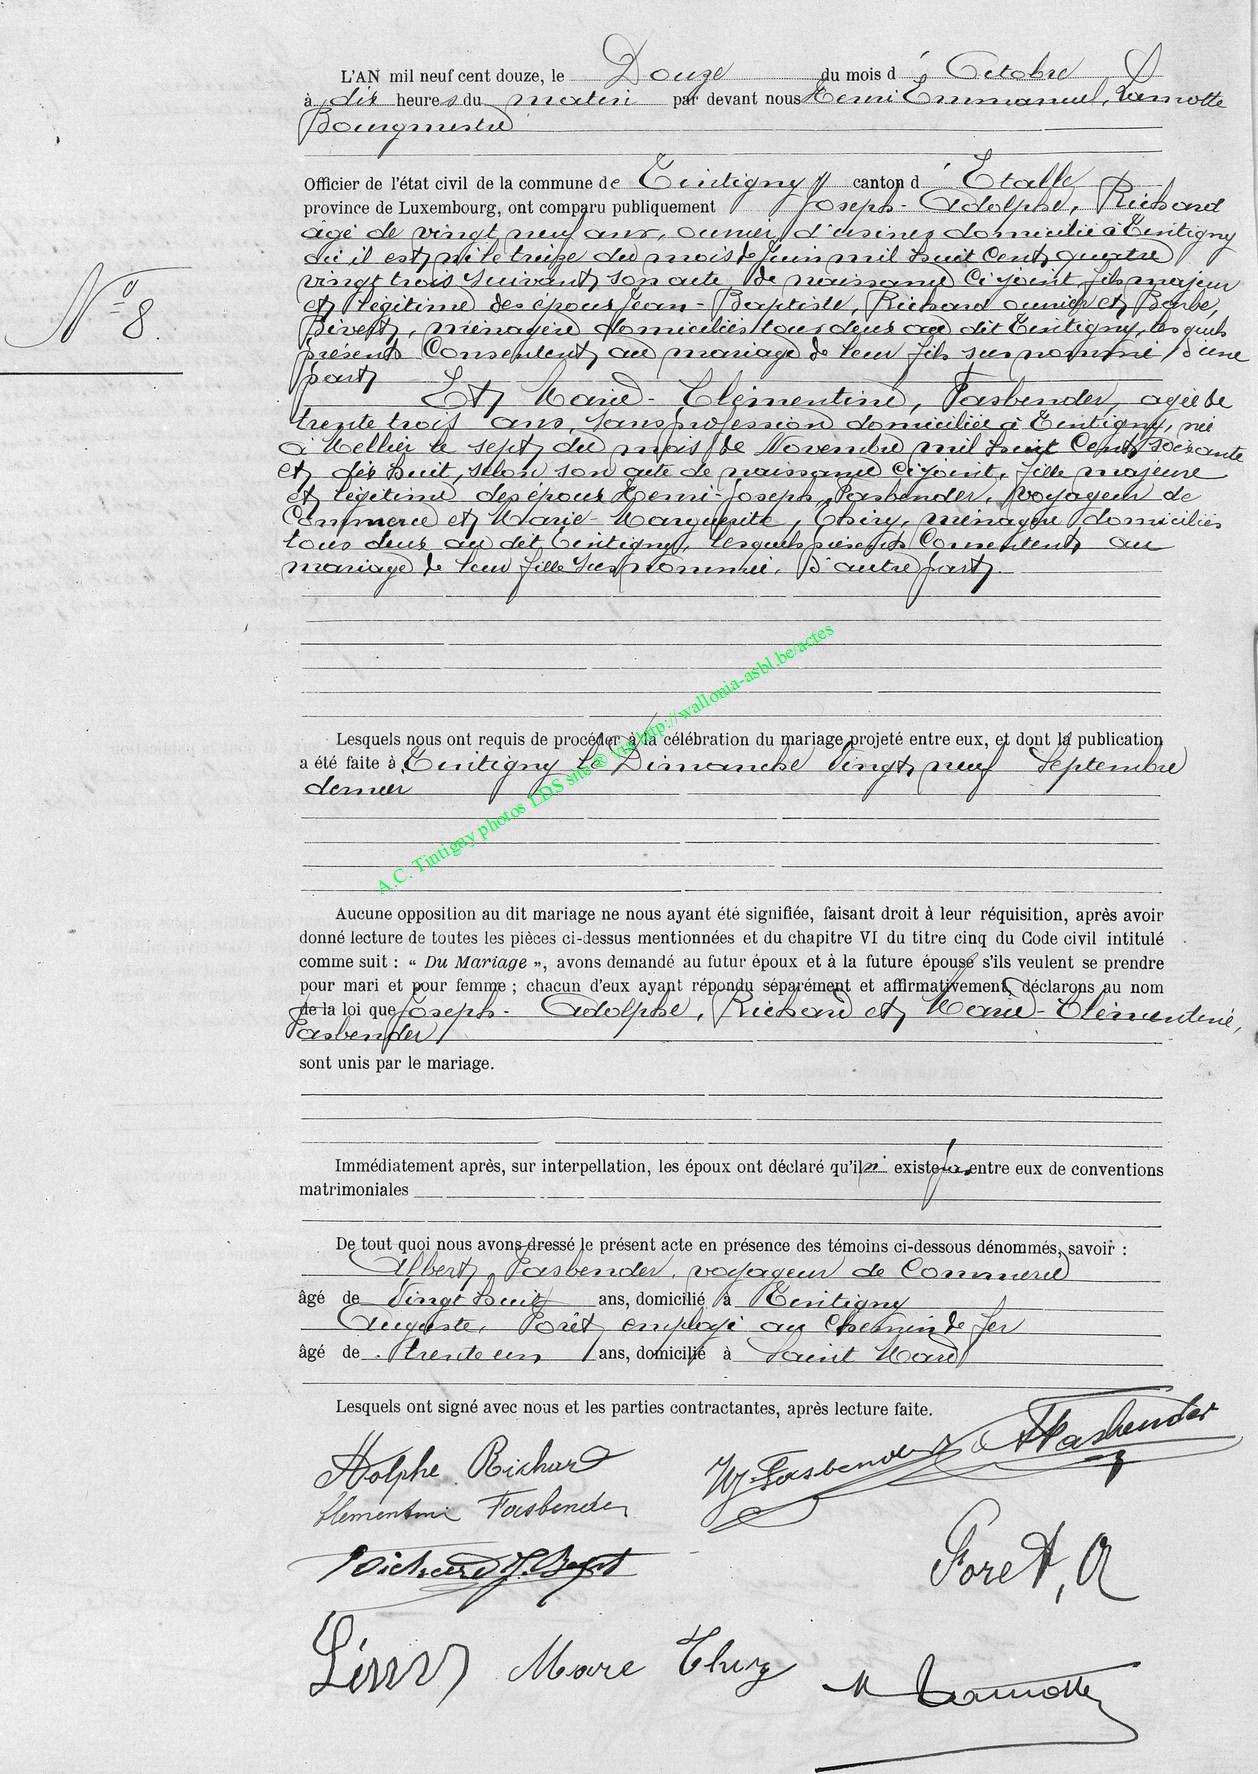 L'AN mil neuf cent douze, le Douze du mois d' Octobre
à dix heures du matin par devant nous Henri Emmanuel, Lamotte
Bourgmestre
Officier de l'état civil de la commune de Tintigny canton d' Etalle
province de Luxembourg, ont comparu publiquement Joseph-Adolphe, Richard
agé de vingt neuf ans, ouvrier d'usines domicilié à Tintigny
où il est né le treize du mois de Juin mil huit cent quatre
vingt trois suivant son acte de naissance ci joint, fils majeur
et légitime des époux Jean-Baptiste, Richard ouvrier et Barbe,
Bivert, ménagère domiciliés tous deux au dit Tintigny, lesquels
présents Consentent au mariage de leur fils sus nommé, d'une
part
N° 8.
Et Marie-Clémentine, Fasbender, agée de
trente trois ans, sans profession domiciliée à Tintigny, née
à Mellier le sept du mois de Novembre mil huit Cent soixante
et dix huit, selon son acte de naissance ci joint, fille majeure
et légitime des époux Henri-Joseph, Fasbender, voyageur de
Commerce et Marie-Marguerite, Thiry, ménagère domiciliés
tous deux au dit Tintigny, lesquels présents Consentent au
mariage de leur fille sus nommée, d'autre part.
Lesquels nous ont requis de procéder à la célébration du mariage projeté entre eux, et dont la publication
a été faite à Tintigny le Dimanche Vingt neuf Septembre
dernier
Aucune opposition au dit mariage ne nous ayant été signifiée, faisant droit à leur réquisition, après avoir
donné lecture de toutes les pièces ci-dessus mentionnées et du chapitre VI du titre cinq du Code civil intitulé
comme suit : « Du Mariage », avons demandé au futur époux et à la future épouse s'ils veulent se prendre
pour mari et pour femme ; chacun d'eux ayant répondu séparément et affirmativement, déclarons au nom
de la loi que Joseph-Adolphe, Richard et Marie-Clémentine,
Fasbender
sont unis par le mariage.
Immédiatement après, sur interpellation, les époux ont déclaré qu'il n' existe pas entre eux de conventions
matrimoniales
De tout quoi nous avons dressé le présent acte en présence des témoins ci-dessous dénommés, savoir :
Albert, Fasbender, voyageur de Commerce
âgé de Vingt huit ans, domicilié à Tintigny
Auguste, Forêt, employé au Chemin de fer
âgé de trente un ans, domicilié à Saint Mard
Lesquels ont signé avec nous et les parties contractantes, après lecture faite.
Adolphe Richard
Hj Fasbender
A Fasbender
Clementine Fasbender
Richard J. Bapt
Foret, A
Marie Thiry
H Lamotte
A.C. Tintigny photos LDS site © via http://wallonia-asbl.be/actes